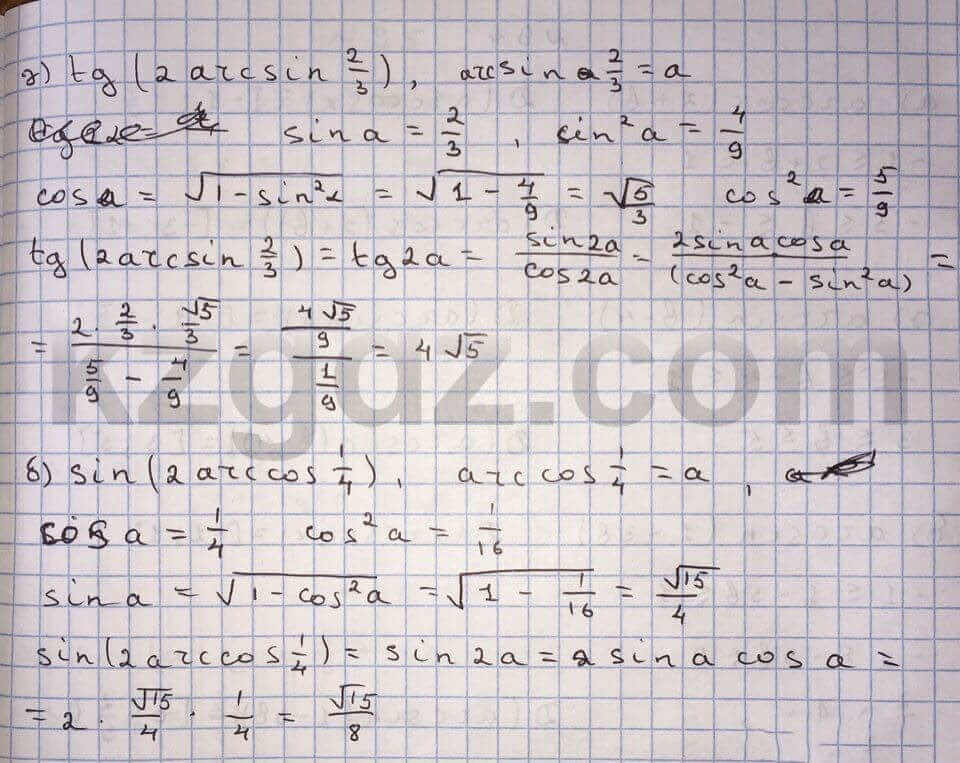 г) tg (2 arcsin 2/3), arcsin 2/3 = a
sin a = 2/3, sin² a = 4/9
cos a = √(1 - sin² a) = √(1 - 4/9) = √5/3 cos² a = 5/9
tg (2 arcsin 2/3) = tg 2a = sin 2a / cos 2a = 2 sin a cos a / (cos² a - sin² a) =
= (2 · 2/3 · √5/3) / (5/9 - 4/9) = (4√5/9) / (1/9) = 4√5
kzgdz.com
б) sin (2 arccos 1/4), arccos 1/4 = a,
cos a = 1/4 cos² a = 1/16
sin a = √(1 - cos² a) = √(1 - 1/16) = √15/4
sin (2 arccos 1/4) = sin 2a = 2 sin a cos a =
= 2 · √15/4 · 1/4 = √15/8